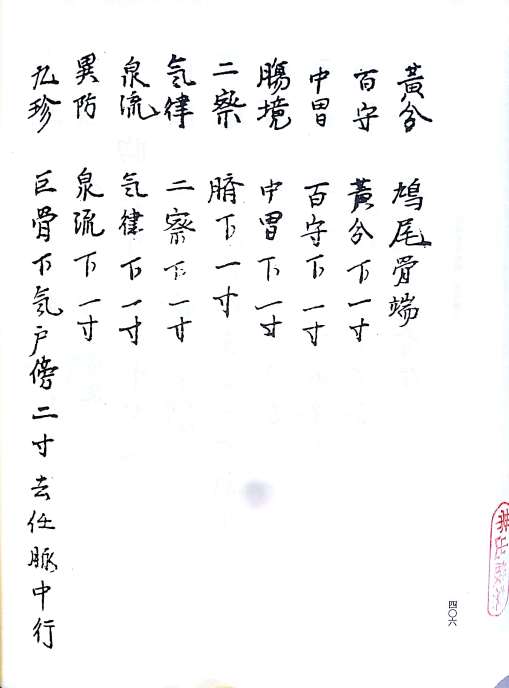 黃分　鳩尾骨端
百守　黃分下一寸
中胃　百守下一寸
腸境　中胃下一寸
二察　臍下一寸
氣律　二察下一寸
泉流　氣律下一寸
異防　泉流下一寸
九珍　巨骨下氣户傍二寸去任脈中行
四〇六